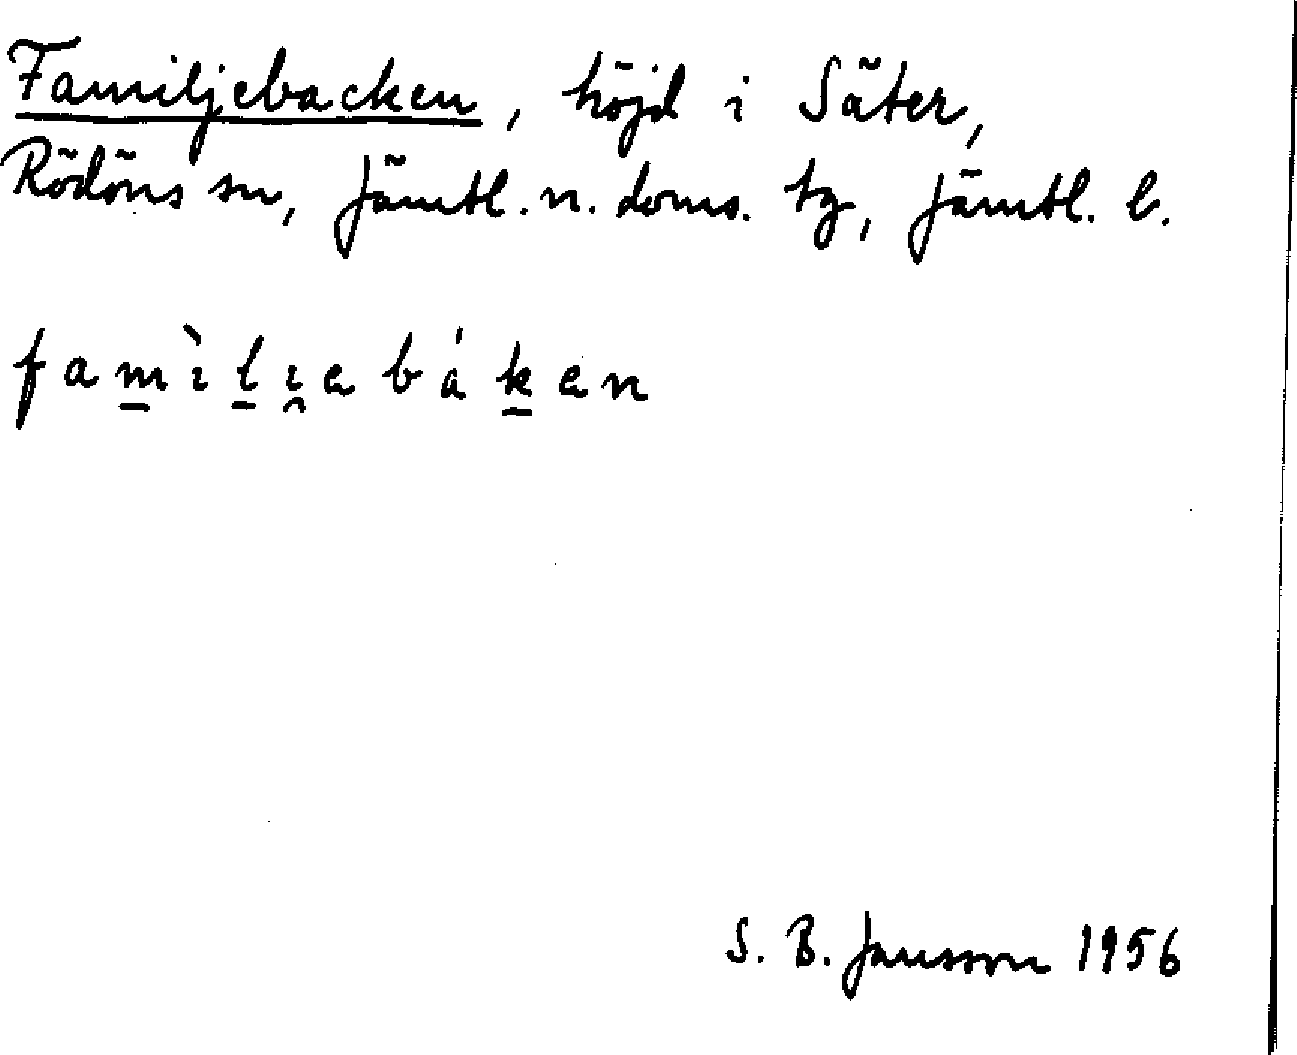 Familjebacken, höjd i Säter,
Rödöns sn, Jämtl. n. doms. tg, Jämtl. l.
fam̲ìl̲ı̯ebák̲en
S. B. Jansson 1956